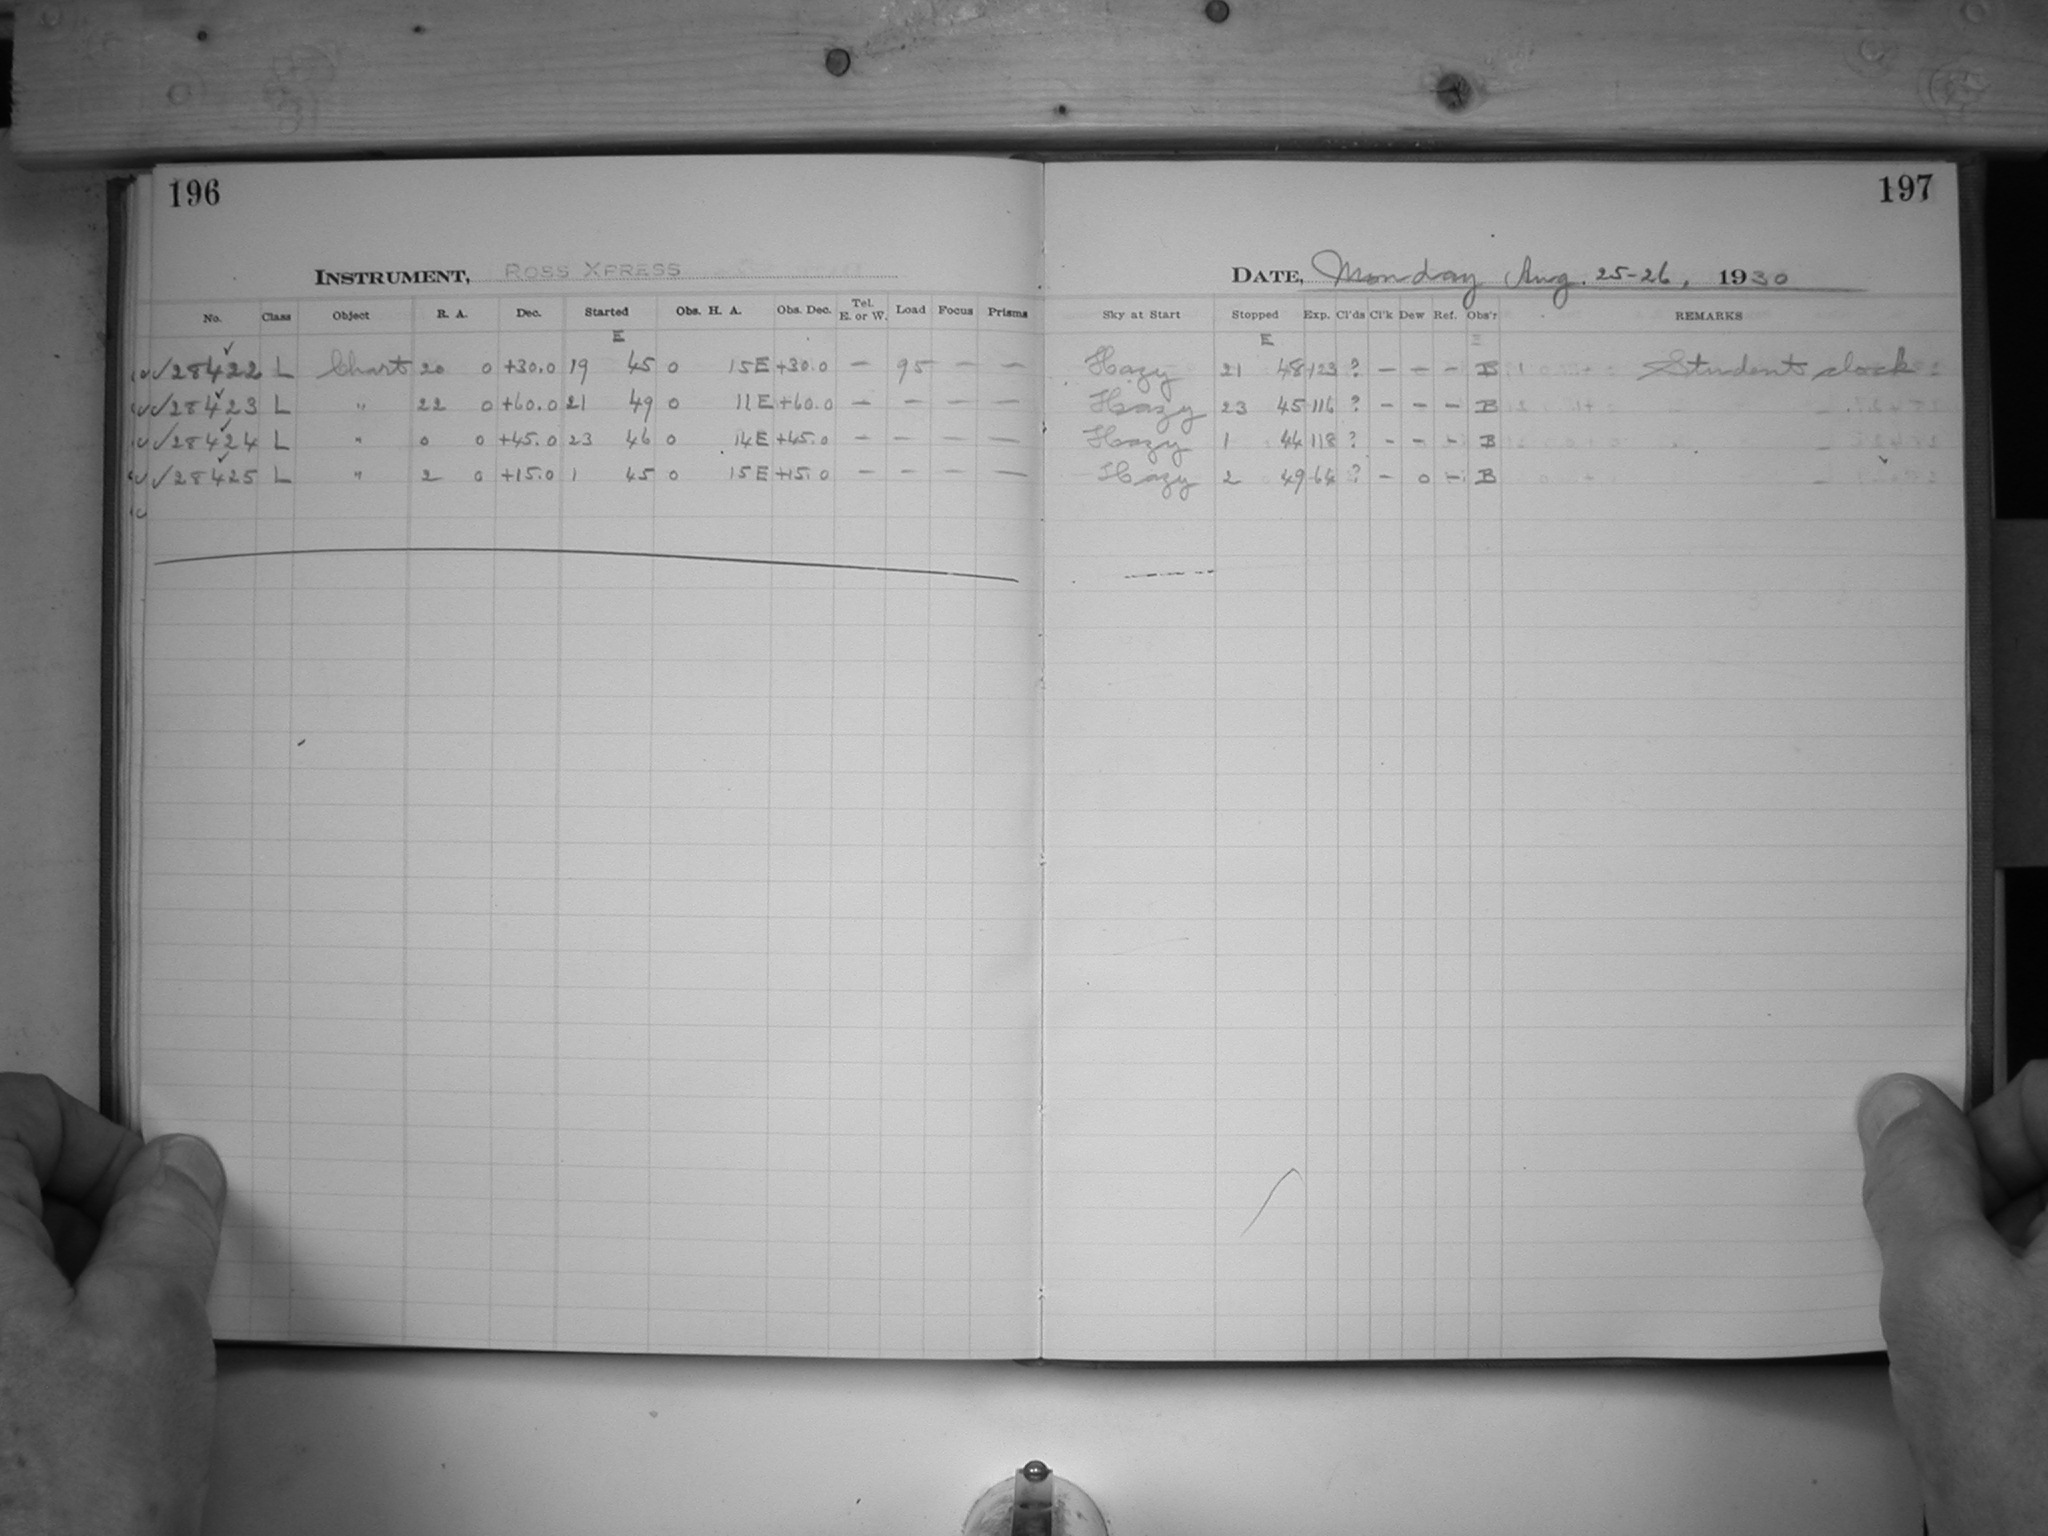 196
197
INSTRUMENT, ROSS XPRESS
DATE, Monday Aug. 25-26, 1930
No. Class Object R. A. Dec. Started Obs. H. A. Obs. Dec. Tel. E. or W. Load Focus Prisms Sky at Start Stopped Exp. Cl'ds Cl'k Dew Ref. Obs'r REMARKS
E E
√28422 L Chart 20 0 +30.0 19 45 0 15E +30.0 — 95 — — Hazy 21 48 123 ? — — — B Students clock
√28423 L " 22 0 +60.0 21 49 0 11E +60.0 — — — — Hazy 23 45 116 ? — — — B
√28424 L " 0 0 +45.0 23 46 0 14E +45.0 — — — — Hazy 1 44 118 ? — — — B
√28425 L " 2 0 +15.0 1 45 0 15E +15.0 — — — — Hazy 2 49 64 ? — 0 — B